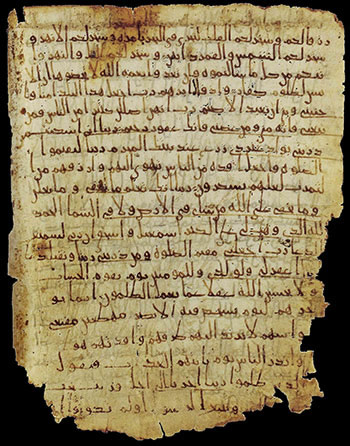 رزقا لكم وسخر لكم الفلك لتجري في البحر بامره وسخر لكم الانهر و
سخر لكم الشمس والقمر دائبين وسخر لكم اليل والنهار و
اتيكم من كل ما سالتموه وان تعدوا نعمة الله لا تحصوها ان ا
لانسن لظلوم كفار واذ قال ابرهيم رب اجعل هذا البلد امنا وا
جنبني وبني ان نعبد الاصنم رب انهن اضللن كثيرا من الناس فمن
تبعني فانه مني ومن عصني فانك غفور رحيم ربنا اني اسكنت من
ذريتي بواد غير ذي زرع عند بيتك المحرم ربنا ليقيموا
الصلوة فاجعل افدة من الناس تهوي اليهم وارزقهم من
الثمرت لعلهم يشكرون ربنا انك تعلم ما نخفي وما نعلن
وما يخفى على الله من شي في الارض ولا في السما الحمد
لله الذي وهب لي على الكبر اسمعيل واسحق ان ربي لسميع
الدعا رب اجعلني مقيم الصلوة ومن ذريتي ربنا وتقبل د
عا ربنا اغفر لي ولولدي وللمومنين يوم يقوم الحساب
ولا تحسبن الله غفلا عما يعمل الظلمون انما يو
خرهم ليوم تشخص فيه الابصر مهطعين مقنعي
روسهم لا يرتد اليهم طرفهم وافدتهم هو
ا وانذر الناس يوم ياتيهم العذاب فيقول
الذين ظلموا ربنا اخرنا الى اجل قريب نجب
ونتبع الرسل اولم تكونوا